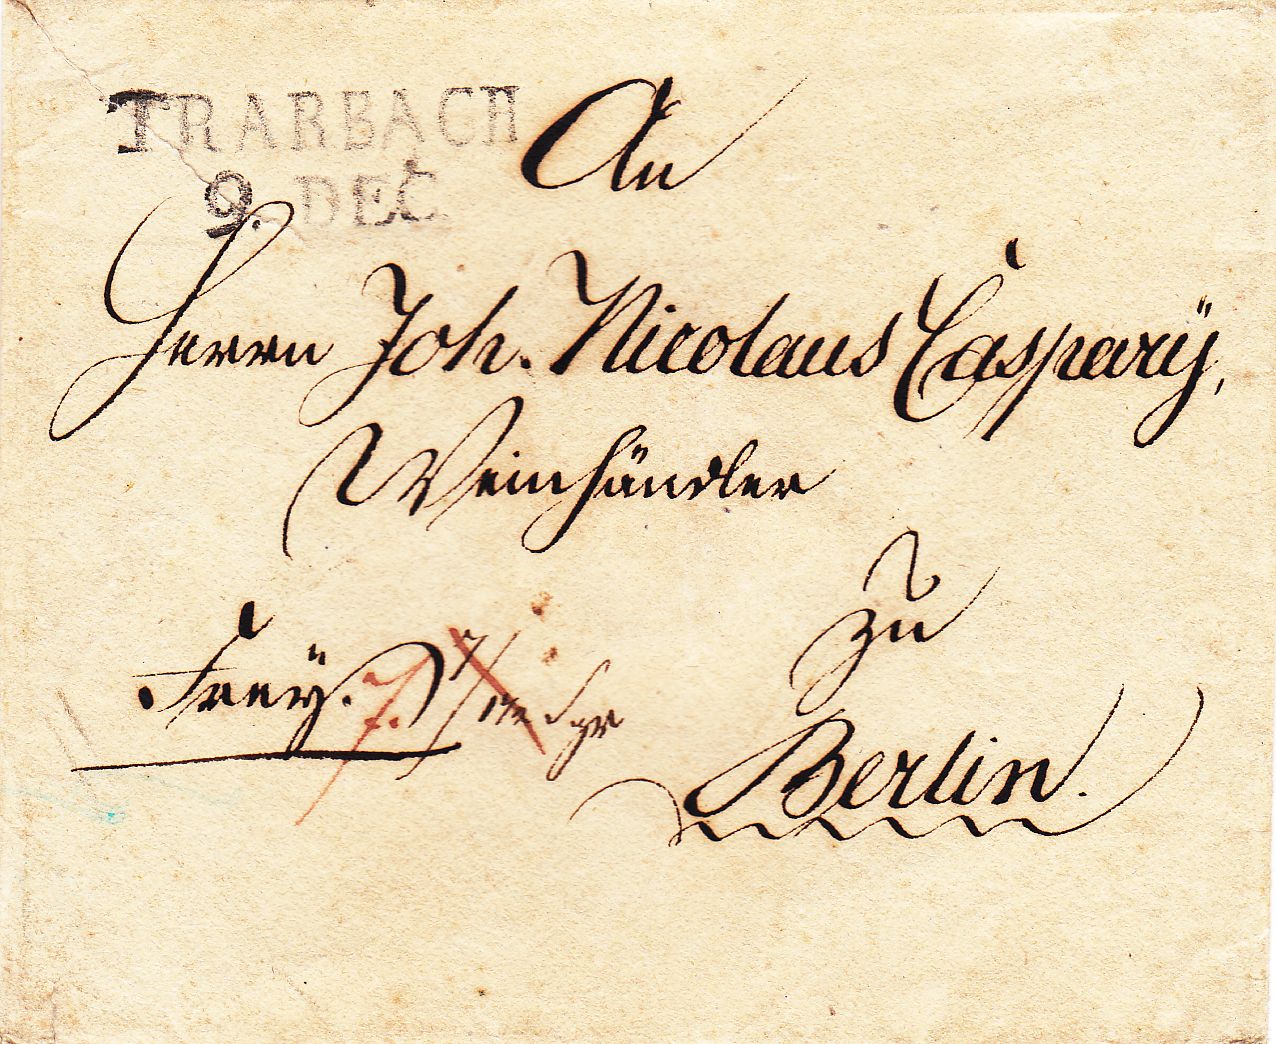 TRARBACH
9. DEC
An
Herrn Joh. Nicolaus Casparÿ,
Weinhändler
zu
Berlin.
Freÿ.